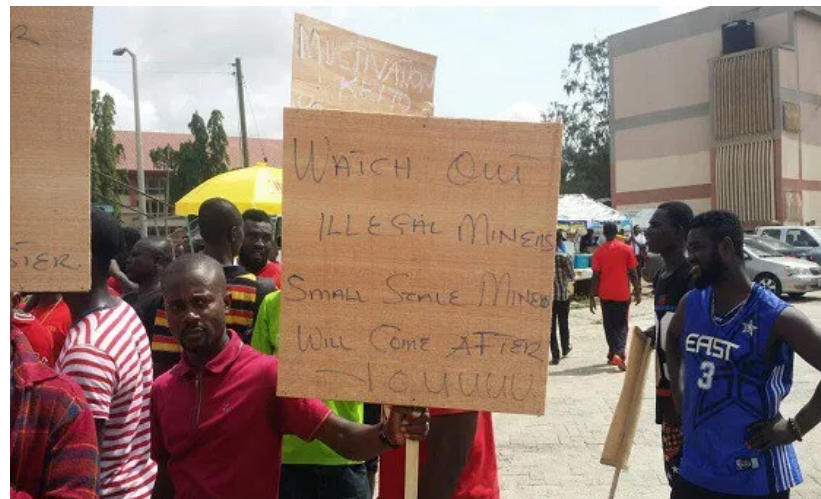 MULTIVATION
WATCH OUT
ILLEGAL MINERS
SMALL SCALE MINERS
WILL COME AFTER
YOUUUU
STER.
EAST
3